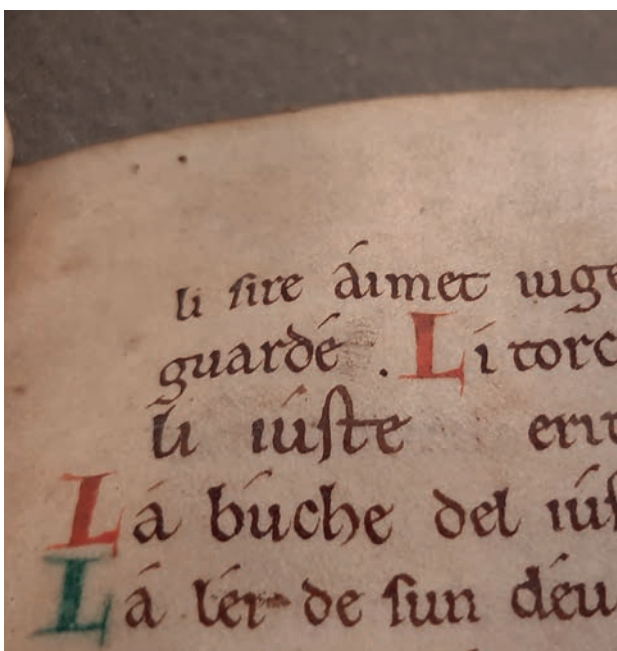 li ſire áimet iuge
guardé . Lí torc
li iúſte erit
Lá búche del iúſ
Lá léi de ſun déu